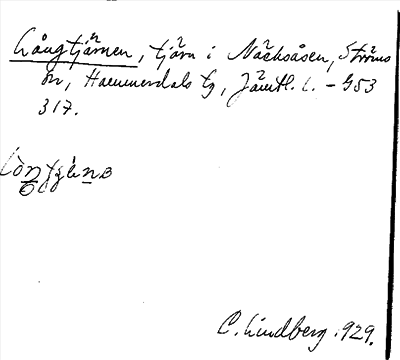 Långtjärnen, tjärn i Näcksåsen, Ströms
sn, Hammerdals tg, Jämtl. l. – 953
317.
C. Lindberg 1929.